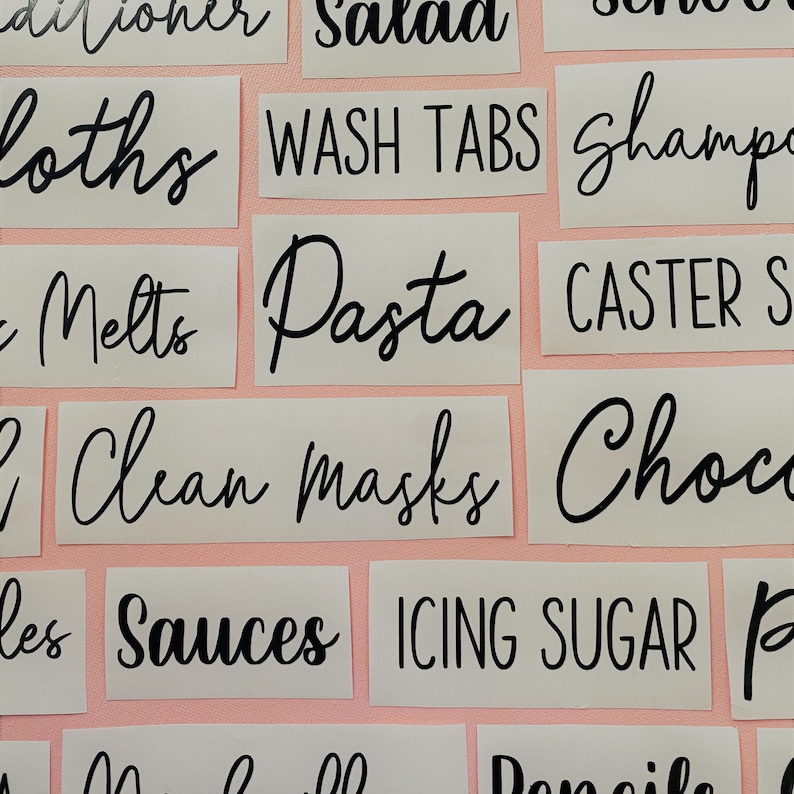 nditioner Salad
loths WASH TABS Shampo
Melts Pasta CASTER S
Clean Masks Choco
les Sauces ICING SUGAR P
Pencils